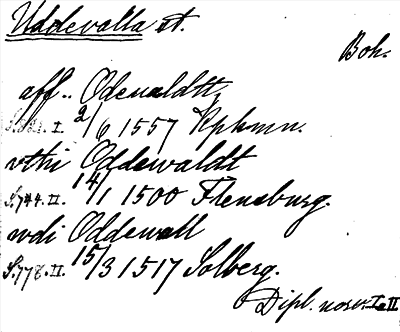 Uddevalla st.
Boh.
aff.. Odenaldth
I. 2/6 1557 Kphmn.
vthi Oddewaldt
S. 744. II. 14/1 1500 Flensburg.
wdi Oddewall
S. 778. II. 15/3 1517 Solberg.
Dipl. norv. I o II